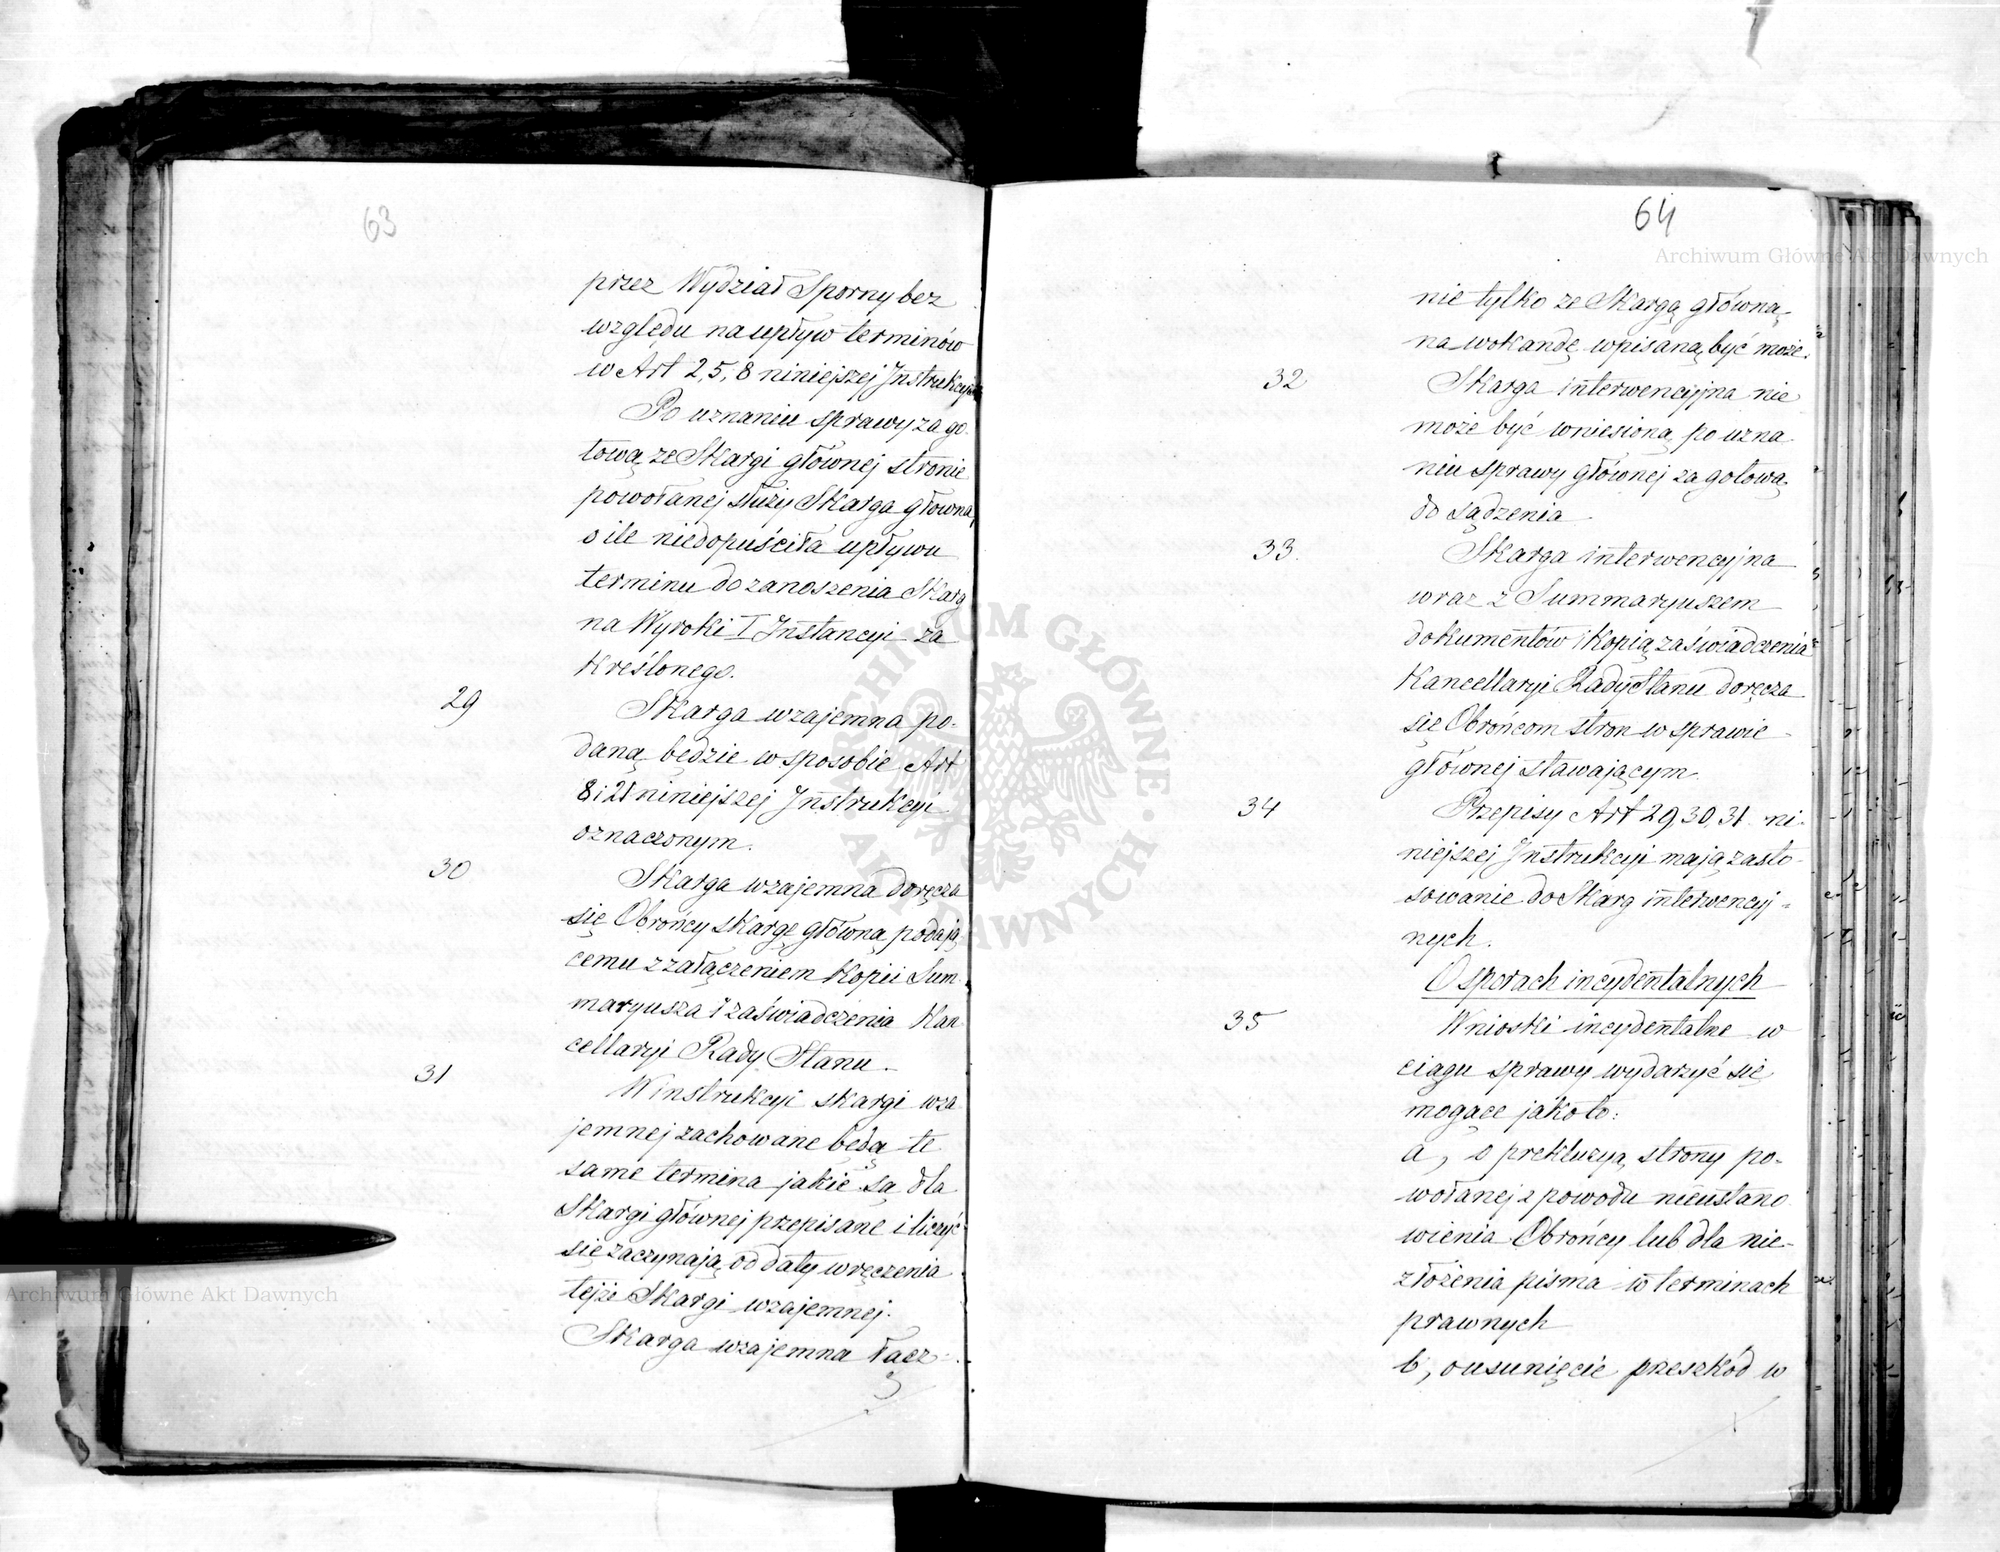 63
przez Wydział Sporny bez
względu na upływ terminów
w Art 2, 5, 8 niniejszej Instrukcyi
Po uznaniu sprawy za go-
tową ze Skargi głównej stronie
powołanej służy Skarga główna,
o ile niedopuściła upływu
terminu do zanoszenia Skarg
na Wyroki I Instancyi za
kreślonego.
29
Skarga wzajemna po-
daną będzie w sposobie Art
8 i 21 niniejszej Instrukcyi
oznaczonym.
30
Skarga wzajemna doręcza
się Obrońcy skargę główną podają
cemu z załączeniem kopii Sum-
maryusza i zaświadczenia Kan
cellaryi Rady Stanu.
31
W instrukcyi skargi wza
jemnej zachowane będą te
same termina jakie są dla
Skargi głównej przepisane i liczyć
się zaczynają od daty wręczenia
tejże Skargi wzajemnej.
Skarga wzajemna łącz=
64
nie tylko ze Skargą główną
na wokandę wpisaną być może.
32
Skarga interwencyjna nie
może być wniesioną po uzna
niu sprawy głównej za gotową
do sądzenia
33.
Skarga interwencyjna
wraz z Summaryuszem
dokumentów i kopią zaświadczenia
Kancellaryi Rady Stanu doręcza
się Obrońcom stron w sprawie
głównej stawającym.
34
Przepisy Art 29, 30, 31 ni-
niejszej Instrukcyi mają zasto-
sowanie do Skarg interwencyj=
nych.
O sporach incydentalnych
35
Wnioski incydentalne w
ciągu sprawy wydarzyć się
mogące jako to:
a, o prekluzyą strony po-
wołanej z powodu nieustano
wienia Obrońcy lub dla nie-
złożenia pisma w terminach
prawnych
b, o usunięcie przeszkód w
Archiwum Główne Akt Dawnych
Archiwum Główne Akt Dawnych
ARCHIWUM GŁÓWNE AKT DAWNYCH